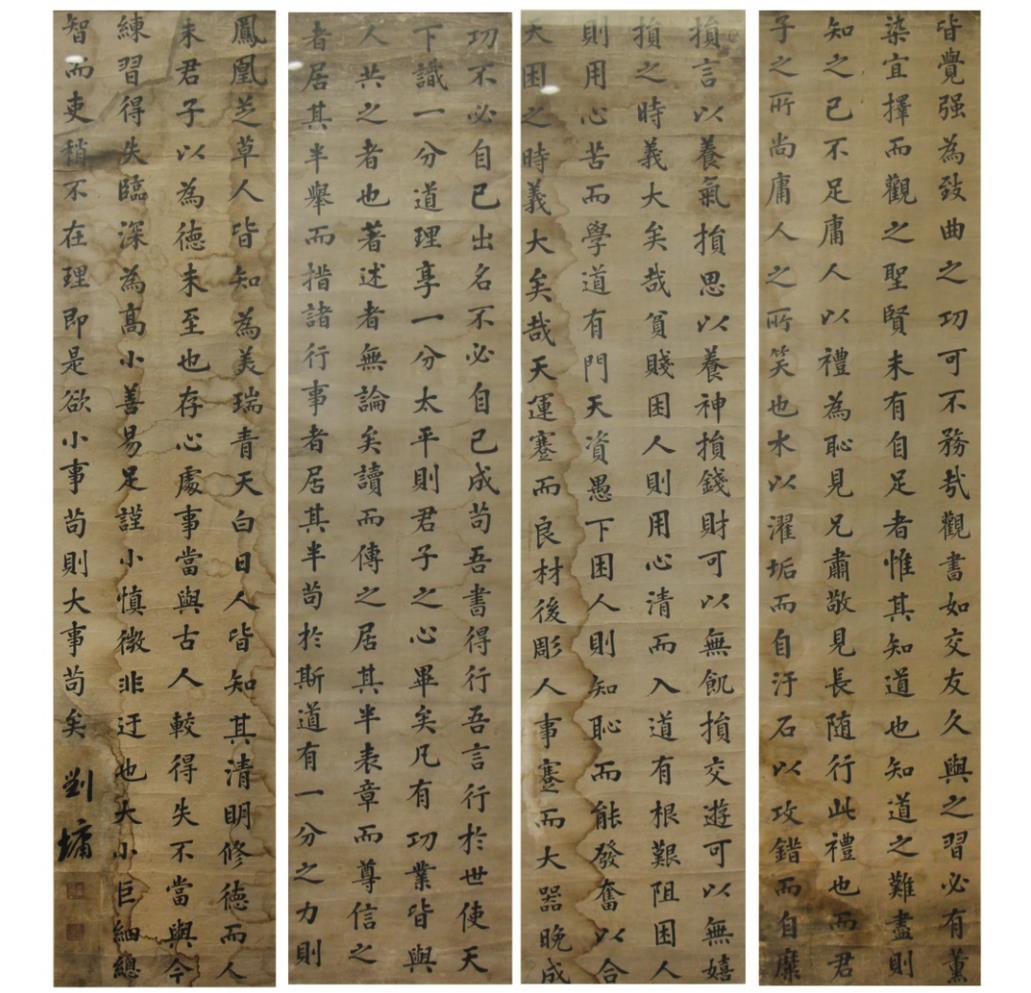 皆覺强為致曲之功可不務哉觀書如交友久與之習必有薰
染宜擇而觀之聖賢未有自足者惟其知道也知道之難盡則
知之已不足庸人以禮為恥見兄肅敬見長随行此禮也而君
子之所尚庸人之所笑也水以濯垢而自汙石以攻錯而自糜
損言以養氣損思以養神損錢財可以無飢損交遊可以無嬉
損之時義大矣哉貧賤困人則用心清而入道有根艱阻困人
則用心苦而學道有門天資愚下困人則知恥而能發奮以合
天困之時義大矣哉天運蹇而良材後彫人事蹇而大器晚成
功不必自己出名不必自己成苟吾書得行吾言行於世使天
下識一分道理享一分太平則君子之心畢矣凡有功業皆與
人共之者也著述者無論矣讀而傳之居其半表章而尊信之
者居其半舉而措諸行事者居其半苟於斯道有一分之力則
鳳凰芝草人皆知為美瑞青天白日人皆知其清明修德而人
未君子以為德未至也存心處事當與古人較得失不當與今
練習得失臨深為高小善易足謹小慎微非迂也大小巨細總
智而吏稍不在理即是欲小事苟則大事苟矣
劉墉